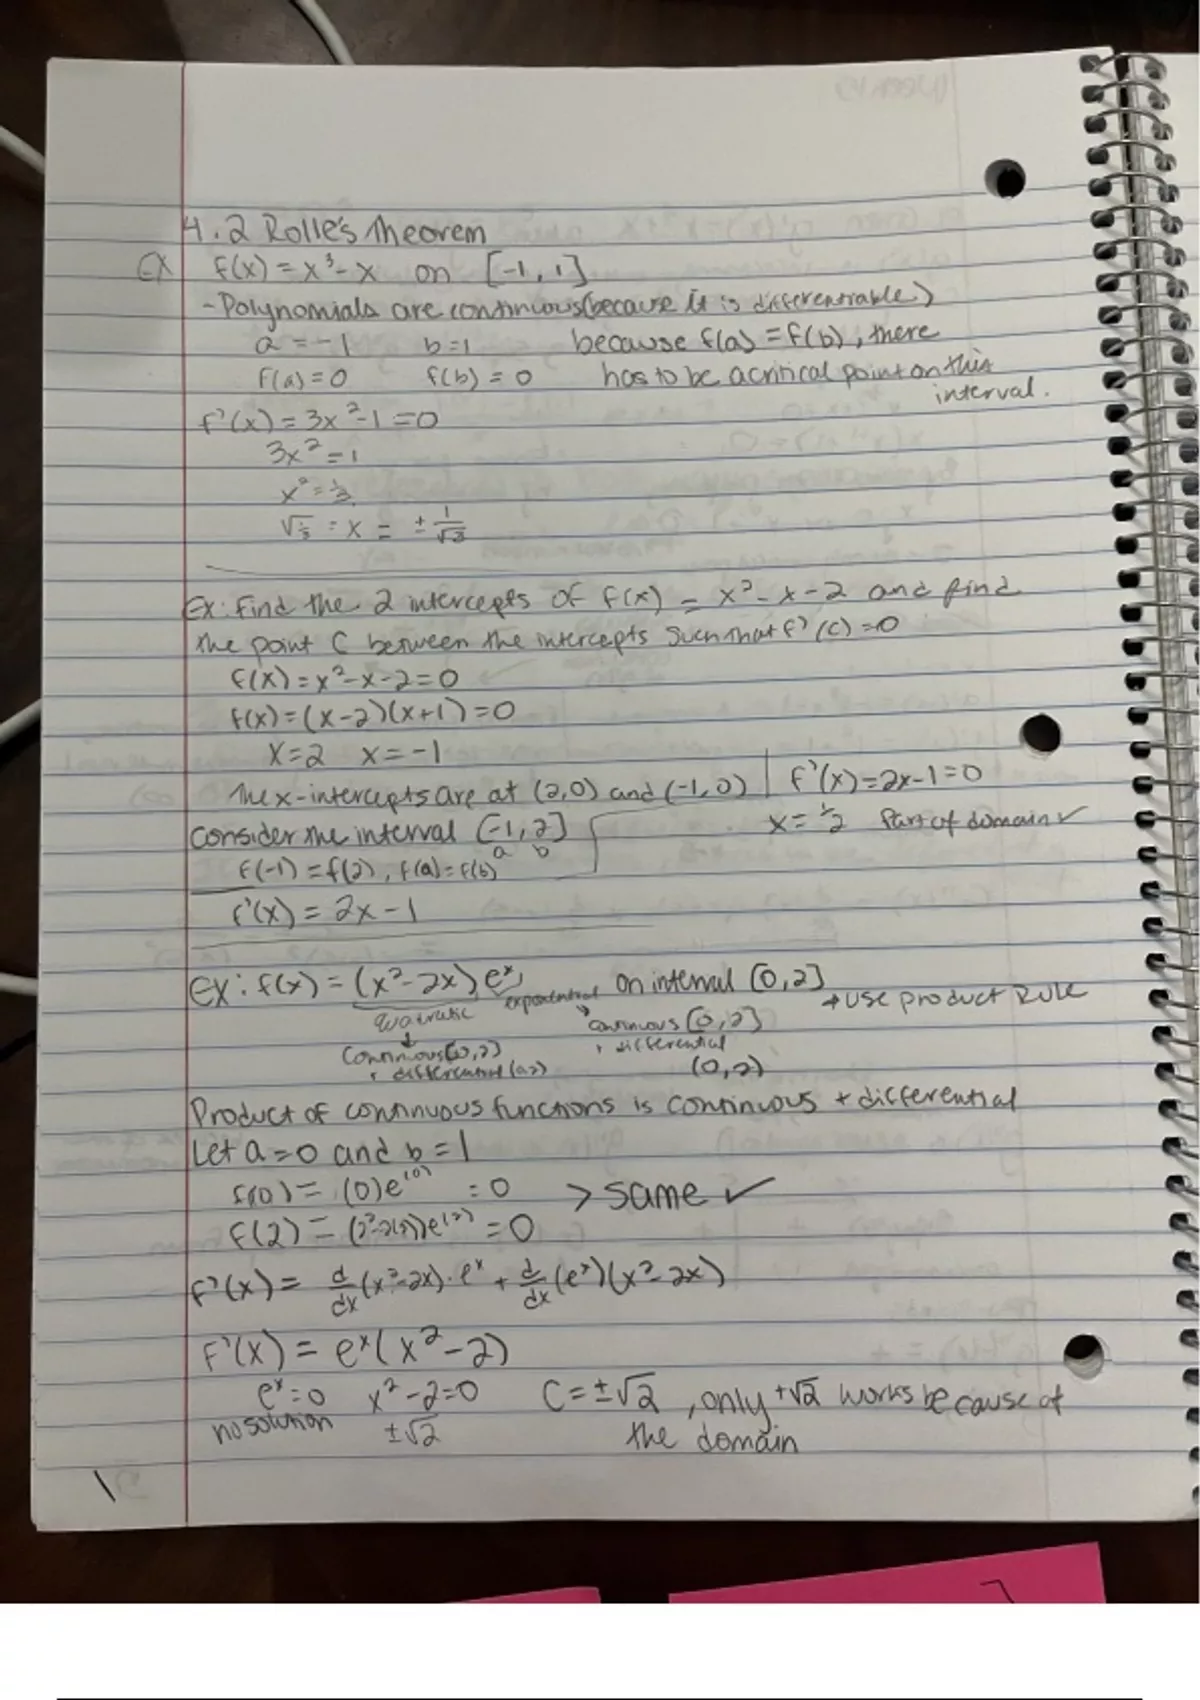 4.2 Rolle's Theorem
Ex f(x) = x³ - x on [-1, 1]
- Polynomials are continuous (because it is differentiable)
a = -1 b = 1 because f(a) = f(b), there
f(a) = 0 f(b) = 0 has to be a critical point on this
interval.
f'(x) = 3x² - 1 = 0
3x² = 1
x² = 1/3
√1/3 = x = ± 1/√3
Ex: Find the 2 intercepts of f(x) = x² - x - 2 and find
the point C between the intercepts such that f'(c) = 0
f(x) = x² - x - 2 = 0
f(x) = (x-2)(x+1) = 0
x = 2 x = -1
The x-intercepts are at (2,0) and (-1,0) | f'(x) = 2x - 1 = 0
Consider the interval [-1, 2] x = 1/2 Part of domain ✓
a b
f(-1) = f(2), f(a) = f(b)
f'(x) = 2x - 1
ex: f(x) = (x² - 2x) eˣ, on interval [0, 2] → use product Rule
Quadratic exponential
continuous [0,2]
continuous [0,2] + differential
+ differential (0,2) (0,2)
Product of continuous functions is continuous + differential
Let a = 0 and b = 1
f(0) = (0)e⁽⁰⁾ = 0 > same ✓
f(2) = (2²-2(2))e⁽²⁾ = 0
f'(x) = d/dx (x²-2x)·eˣ + d/dx (eˣ)(x²-2x)
f'(x) = eˣ(x² - 2)
eˣ = 0 x² - 2 = 0 C = ±√2, only +√2 works because of
no solution ±√2 the domain
1